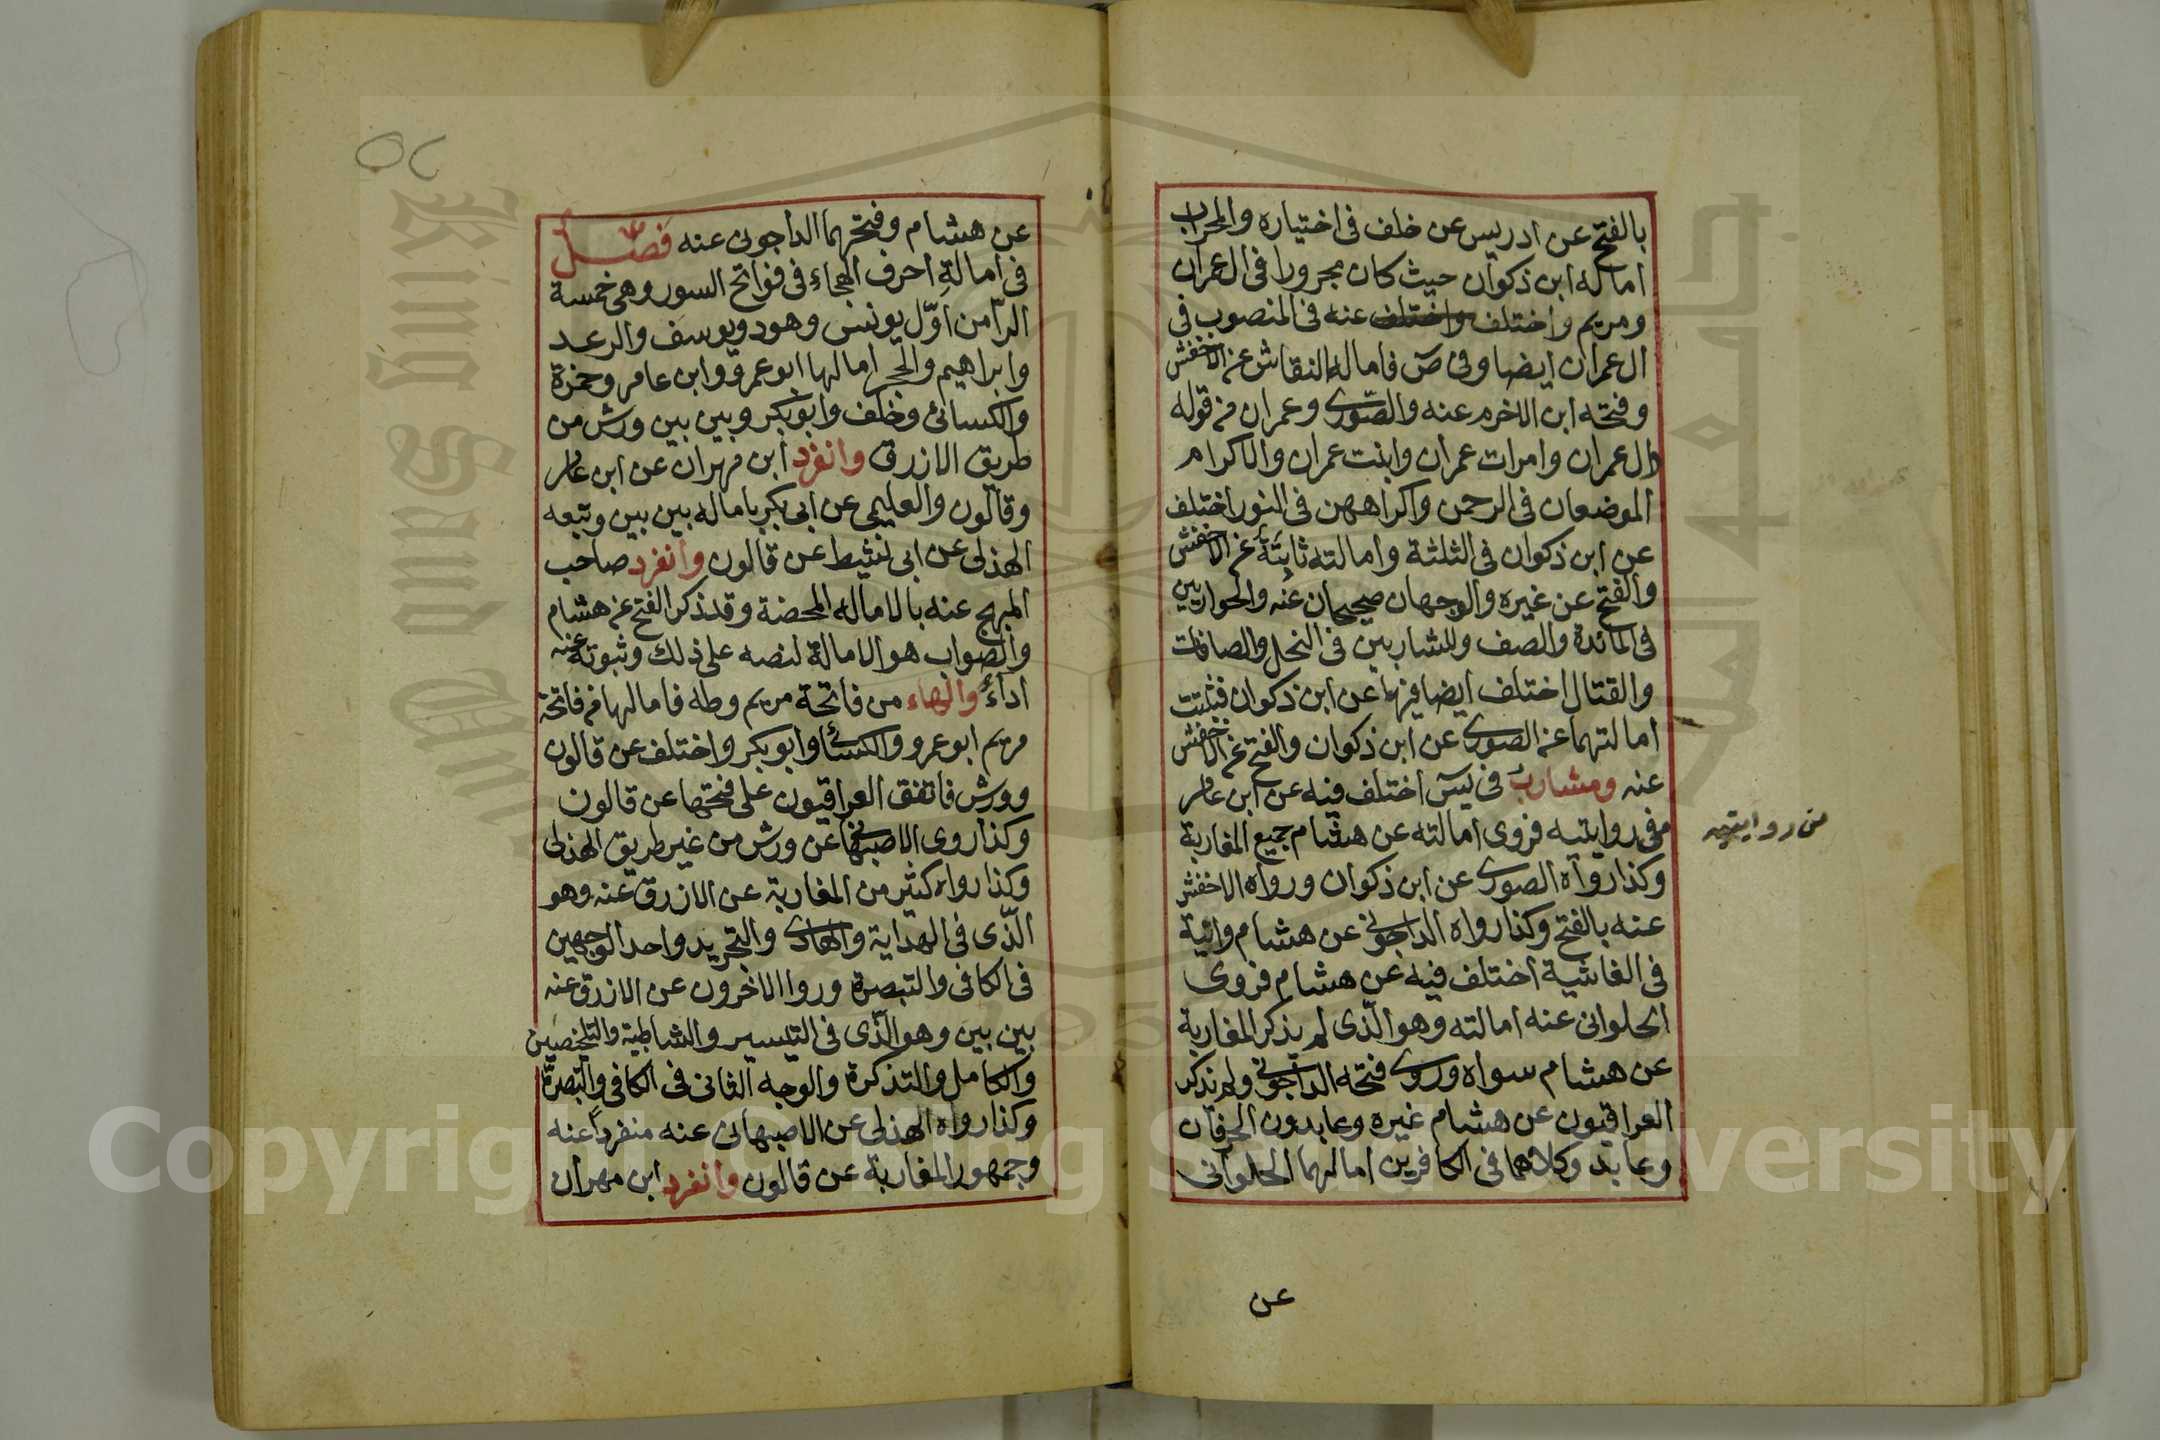 بالفتح عن ادريس عن خلف فى اختياره والمحراب
اماله ابن ذكوان حيث كان مجرورا فى ال عمران
ومريم واختلف واختلف عنه فى المنصوب فى
ال عمران ايضا وفى ص فاماله النقاش عن الاخفش
وفتحه ابن الاخرم عنه والصورى وعمران من قوله
ال عمران وامرات عمران وابنت عمران والاكرام
الموضعان فى الرحمن واكراههن فى النور اختلف
عن ابن ذكوان فى الثلثة وامالته ثابتة عن الاخفش
والفتح عن غيره والوجهان صحيحان عنه والحواريين
فى المائدة والصف وللشاربين فى النحل والصافات
والقتال اختلف ايضا فيها عن ابن ذكوان فثبتت
امالتهما عن الصورى عن ابن ذكوان والفتح عن الاخفش
عنه ومشارب فى يس اختلف فيه عن ابن عامر
فى روايتيه فروى امالته عن هشام جميع المغاربة
من روايتيه
وكذا رواه الصورى عن ابن ذكوان ورواه الاخفش
عنه بالفتح وكذا رواه الداجونى عن هشام وانية
فى الغاشية اختلف فيه عن هشام فروى
الحلوانى عنه امالته وهو الذى لم يذكر المغاربة
عن هشام سواه وروى فتحه الداجونى ولم يذكر
العراقيون عن هشام غيره وعابدون الحرفان
وعابد وكلاهما فى الكافرين امالهما الحلوانى
عن
٥٢
عن هشام وفتحهما الداجونى عنه فصل
فى امالة احرف الهجاء فى فواتح السور وهى خمسة
الرا من اول يونس وهود ويوسف والرعد
وابراهيم والحجر امالها ابو عمرو وابن عامر وحمزة
والكسائى وخلف وابو بكر وبين بين ورش من
طريق الازرق وانفرد ابن مهران عن ابن عامر
وقالون والعليمى عن ابى بكر باماله بين بين وتبعه
الهذلى عن ابى نشيط عن قالون وانفرد صاحب
المبهج عنه بالاماله المحضة وقد ذكر الفتح عن هشام
والصواب هو الامالة لنصه على ذلك وثبوته عنه
اداء والهاء من فاتحة مريم وطه فامالها من فاتحة
مريم ابو عمرو والكسائى وابو بكر واختلف عن قالون
وورش فاتفق العراقيون على فتحها عن قالون
وكذا روى الاصبهانى عن ورش من غير طريق الهذلى
وكذا رواه كثير من المغاربة عن الازرق عنه وهو
الذى فى الهداية والهادى والتجريد واحد الوجهين
فى الكافى والتبصرة وروا الاخرون عن الازرق عنه
بين بين وهو الذى فى التيسير والشاطبية والتلخيصين
والكامل والتذكرة والوجه الثانى فى الكافى والتبصرة
وكذا رواه الهذلى عن الاصبهانى عنه منفردا عنه
وجمهور المغاربة عن قالون وانفرد ابن مهران
King Saud University
جامعة الملك سعود
Copyright © King Saud University